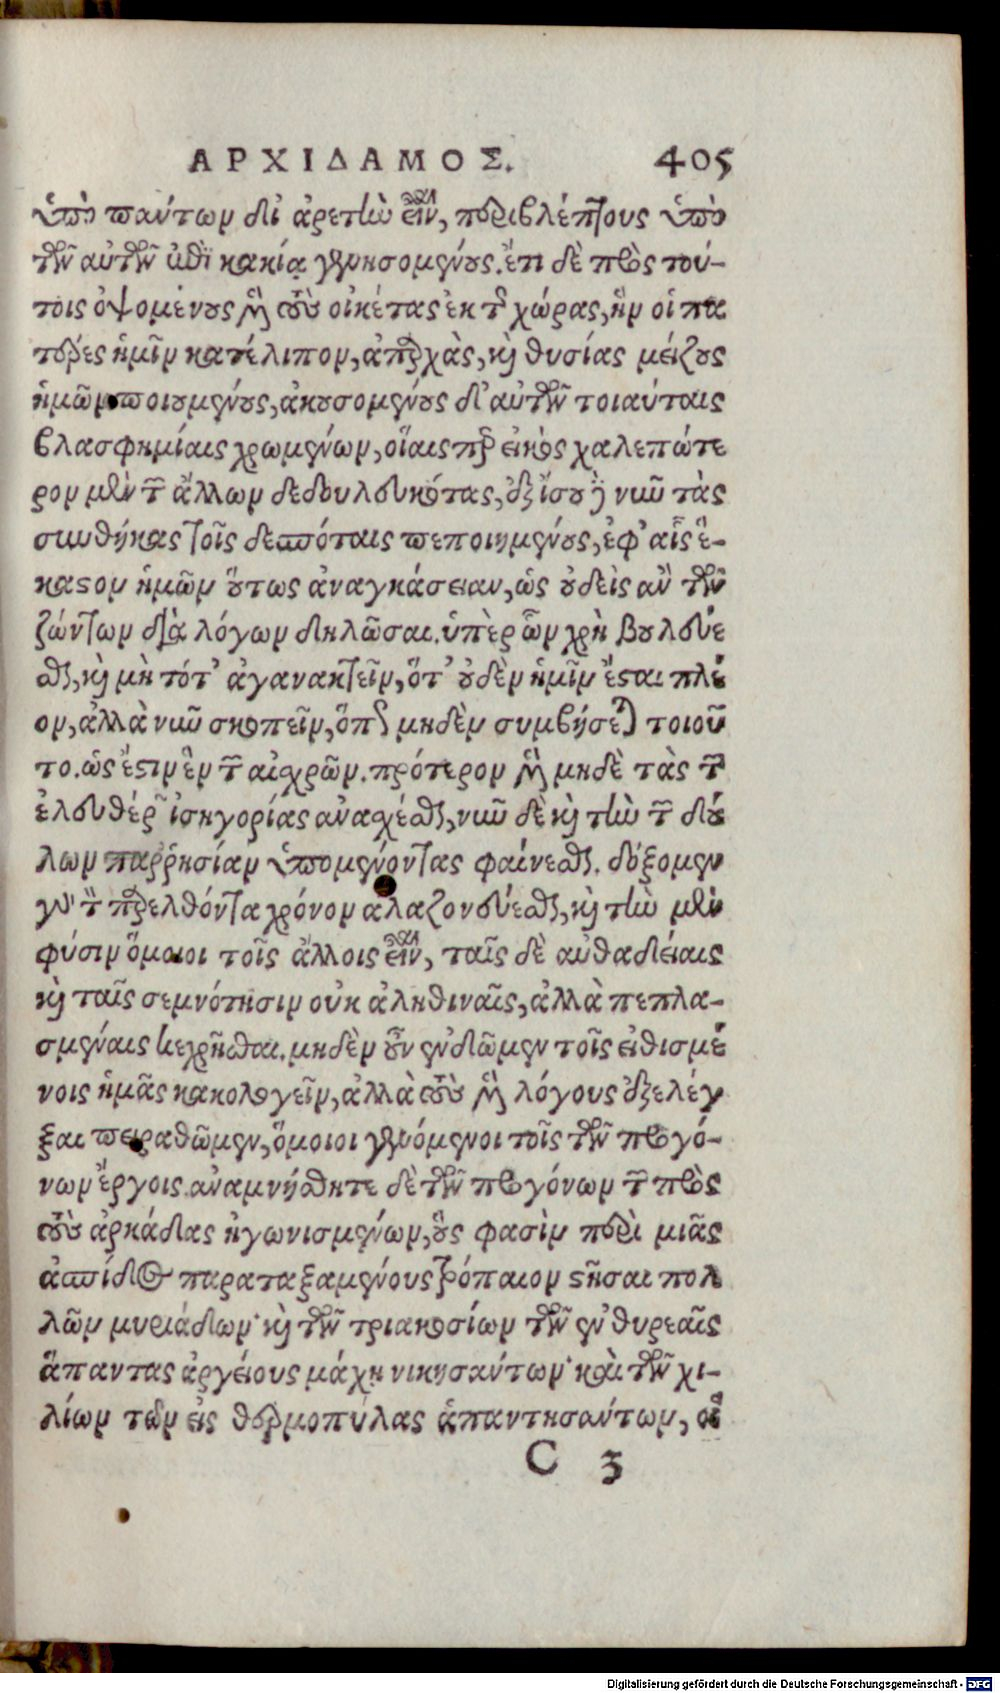 ΑΡΧΙΔΑΜΟΣ. 405
ὑπὸ πάντων δι' ἀρετὴν εἶναι, περιβλέπτους ὑπὸ
τῶν αὐτῶν ἐπὶ κακίᾳ γενησομένους. ἔτι δὲ πρὸς τού-
τοις ὀψομένους μὲν τοὺς οἰκέτας ἐκ τῆς χώρας, ἣν οἱ πα
τέρες ἡμῖν κατέλιπον, ἀπαρχὰς, καὶ θυσίας μείζους
ἡμῶν ποιουμένους, ἀκουσομένους δ' αὐτῶν τοιαύταις
βλασφημίαις χρωμένων, οἵαις περ εἰκὸς χαλεπώτε
ρον μὲν τῶν ἄλλων δεδουλευκότας, ἐξ ἴσου δὲ νῦν τὰς
συνθήκας τοῖς δεσπόταις πεποιημένους, ἐφ' αἷς ἕ-
καστον ἡμῶν οὕτως ἀναγκάσειαν, ὡς οὐδεὶς ἂν τῶν
ζώντων διὰ λόγων δηλῶσαι. ὑπὲρ ὧν χρὴ βουλεύε
σθαι, καὶ μὴ τότ' ἀγανακτεῖν, ὅτ' οὐδὲν ἡμῖν ἔσται πλέ
ον, ἀλλὰ νῦν σκοπεῖν, ὅπως μηδὲν συμβήσεται τοιοῦ
το. ὡς ἔστιν ἓν τῶν αἰσχρῶν. πρότερον μὲν μηδὲ τὰς τῶν
ἐλευθέρων ἰσηγορίας ἀνασχέσθαι, νῦν δὲ καὶ τὴν τῶν δού
λων παρρησίαν ὑπομένοντας φαίνεσθαι. δόξομεν
γὰρ τὸν παρελθόντα χρόνον ἀλαζονεύεσθαι, καὶ τὴν μὲν
φύσιν ὅμοιοι τοῖς ἄλλοις εἶναι, ταῖς δὲ αὐθαδείαις
καὶ ταῖς σεμνότησιν οὐκ ἀληθιναῖς, ἀλλὰ πεπλα-
σμέναις κεχρῆσθαι. μηδὲν οὖν ἐνδῶμεν τοῖς εἰθισμέ
νοις ἡμᾶς κακολογεῖν, ἀλλὰ τοὺς μὲν λόγους ἐξελέγ
ξαι πειραθῶμεν, ὅμοιοι γενόμενοι τοῖς τῶν προγό-
νων ἔργοις. ἀναμνήσθητε δὲ τῶν προγόνων τῶν πρὸς
τοὺς ἀρκάδας ἠγωνισμένων, οὓς φασὶν περὶ μιᾶς
ἀσπίδος παραταξαμένους τρόπαιον στῆσαι πολ
λῶν μυριάδων· καὶ τῶν τριακοσίων τῶν ἐν θυρεαῖς
ἅπαντας ἀργείους μάχῃ νικησάντων· καὶ τῶν χι-
λίων τῶν εἰς θερμοπύλας ἀπαντησάντων, οἳ
C 3
Digitalisierung gefördert durch die Deutsche Forschungsgemeinschaft - DFG